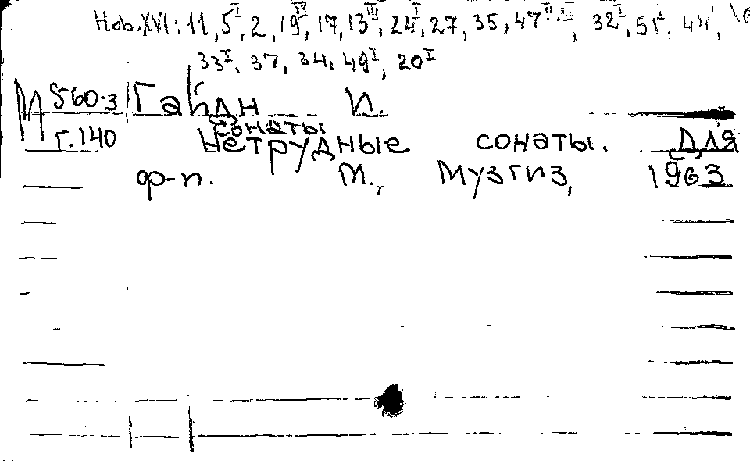 Hob. XVI: 11, 5 I, 2, 19 IV, 17, 13 III, 24 I, 27, 35, 47 II, III, 32 I, 51 I, 44,
33 I, 37, 34, 49 I, 20 I
М 560-3 Гайдн И.
Г.140 сонаты
Нетрудные сонаты. Для
ф-п. М., Музгиз, 1963